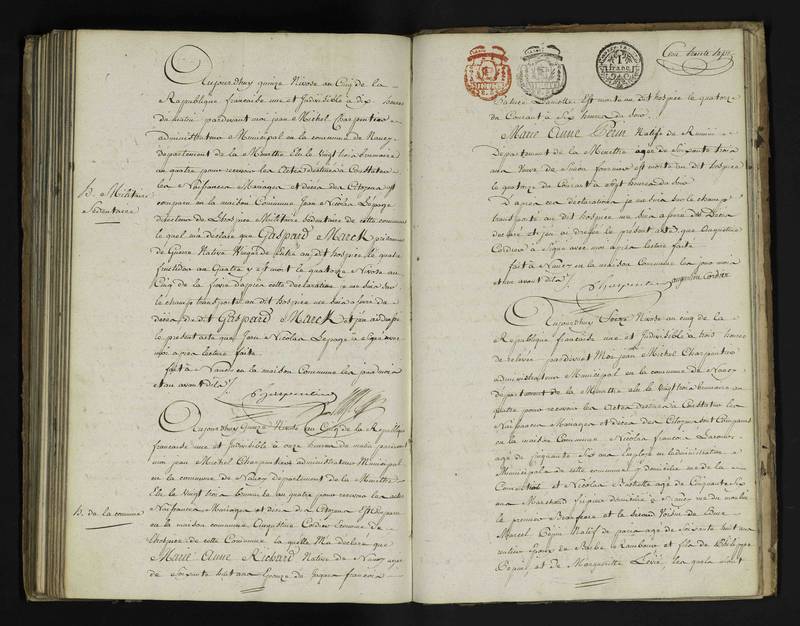 Aujourdhuy quinze Nivose an Cinq de la
République francaise une et Indivisible à dix heures
du matin pardevant moi jean Michel Charpentier
administrateur Municipal en la commune de Nancy
departement de la Meurthe Elu le Vingt trois brumaire
an quatre pour recevoir les actes destinés à Constater
les Naissances Mariages et décès des Citoyens est
comparu en la maison Commune Jean Nicolas Lepage
directeur de L'hospice Militaire Sedentaire de cette commune
lequel m'a déclaré que Gaspard Marck
de Guerre Natif entré au dit hospice le quatre
fructidor an Quatre y est mort le quatorze Nivose an
Cinq de la d'après cette déclaration je me suis sur
le champ transporté au dit hospice me suis assuré du
décès du dit Gaspard Marck et j'en ai dressé
le present acte que Jean Nicolas Lepage a signé avec
moi après lecture faite
fait à Nancy en la maison Commune les jour mois
et an avant dits
Charpentier
h. Militaire
Sedentaire
Aujourdhuy Quinze Nivose an Cinq de la République
francaise une et Indivisible à onze heures du matin pardevant
moi jean Michel Charpentier administrateur Municipal
en la commune de Nancy Département de la Meurthe
Elu le Vingt trois brumaire an quatre pour recevoir les actes
Naissances Mariages et décès des Citoyens Est Comparu
en la maison commune Augustin Cordier Econome de
L'hospice de cette Commune laquelle M'a declaré que
Marie Anne Richard Native de Nancy agée
de Soixante huit ans Epouse de françois
h. de la commune
Cent trente sept
1
franc
Est morte au dit hospice le quatorze
du Courant à Six heures du soir
Marie Anne Perin Native de
Departement de la Meurthe agée de Soixante trois
ans Veuve de Simon est morte au dit hospice
le quatorze du Courant à Sept heures du Soir
D'apres ces déclarations je me suis sur le champ
transporté au dit hospice me suis assuré des Décès
declarés et j'en ai dressé le présent acte que Augustin
Cordier a Signé avec moi après lecture faite
fait à Nancy en la maison Commune les jour mois
et an avant dits
Charpentier augustin Cordier
Aujourdhuy Seize Nivose an cinq de la
République francaise une et Indivisible à trois heures
de relevée pardevant Moi jean Michel Charpentier
administrateur Municipal en la commune de Nancy
département de la Meurthe elu le vingt trois brumaire an
quatre pour recevoir les Actes destinés à Constater les
Naissances Mariages et décès des Citoyens sont Comparus
en la maison Commune Nicolas francois
agé de Cinquante Six ans Employé en l'administration
Municipale de cette commune y domicilié rue de la
Constitution et Nicolas agé de Cinquante Six
ans Marchand fripier domicilié à Nancy rue du moulin
le premier Beaufrere et le second Voisin de
Marcel Pepin Natif de paris agé de Soixante huit ans
Epoux de Barbe et fils de Philippe
Pepin et de Marguerite lesquels m'ont